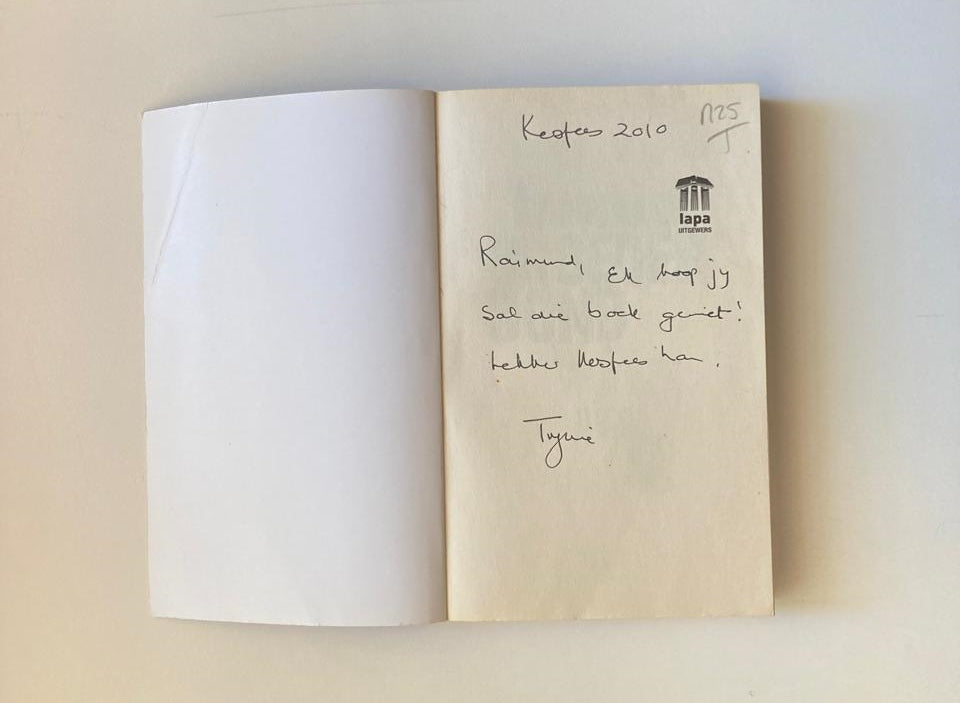 Kesfees 2010
R25
lapa
UITGEWERS
Raimund, Ek hoop jy
sal die boek geniet!
Lekker Kesfees hou.
Trynie